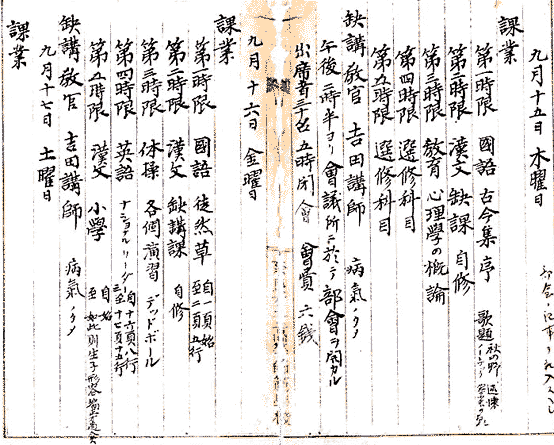 九月十五日 木曜日
課業
第一時限 國語 古今集 序
第二時限 漢文 缺課 自修
第三時限 教育 心理學の概論
第四時限 選修科目
第五時限 選修科目
缺講教官 吉田講師 病氣ノタメ
午後二時半ヨリ會議所ニ於テ部會ヲ開カル
出席者三十名 五時閉會 會費 六錢
九月十六日 金曜日
課業
第一時限 國語 徒然草 自一頁始 至二頁五行
第二時限 漢文 缺講課 自修
第三時限 体操 各個演習 デッドボール
第四時限 英語 ナショナルリーダー 自十六頁八行 至十七頁十五行
第五時限 漢文 小學 自始
缺講教官 吉田講師 病氣ノタメ
九月十七日 土曜日
課業